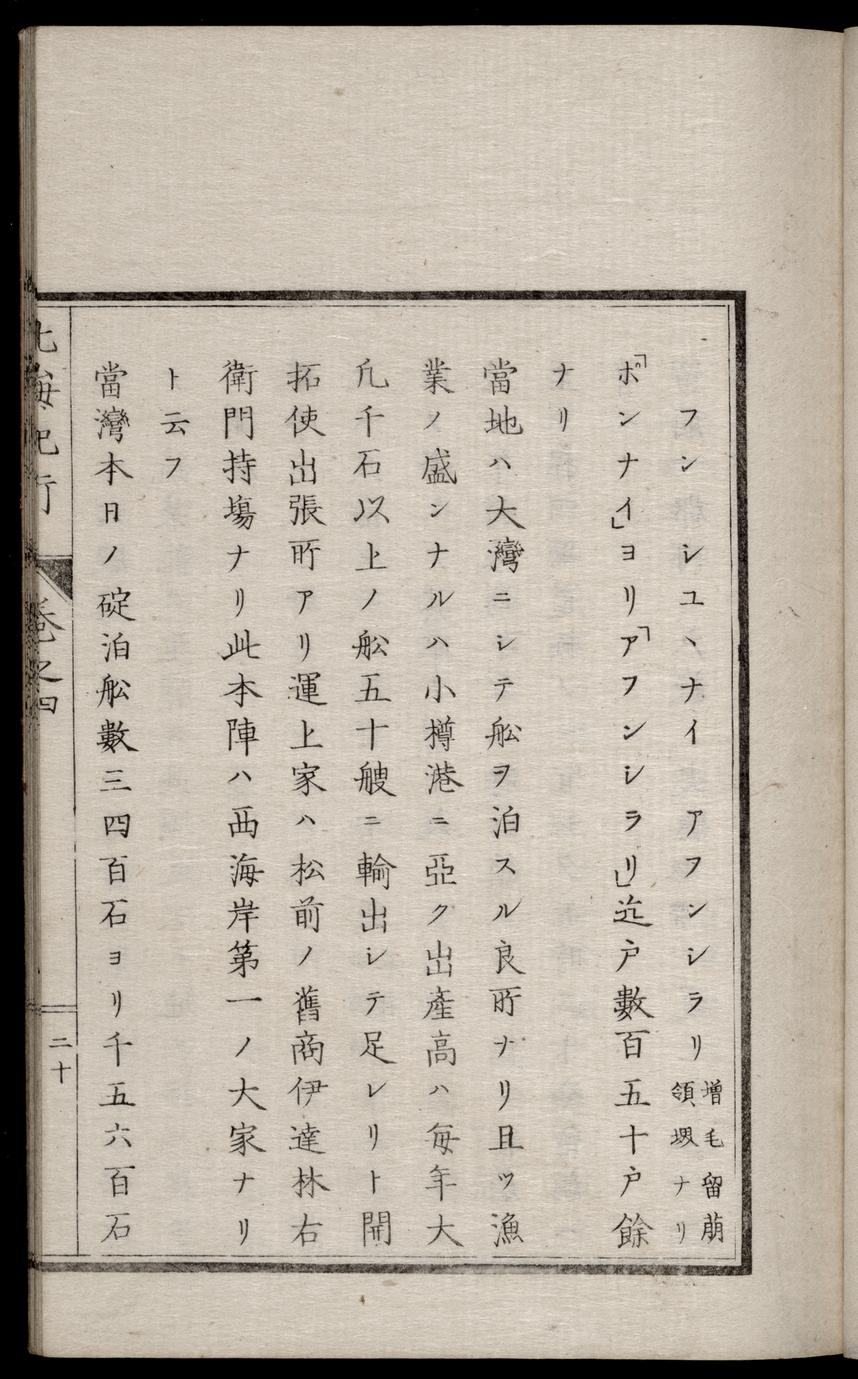 フン　シユヽナイ　アフンシラリ 増毛留萠領堺ナリ
「ポンナイ」ヨリ「アフンシラリ」迄戸數百五十戸餘
ナリ
當地ハ大灣ニシテ舩ヲ泊スル良所ナリ且ツ漁
業ノ盛ンナルハ小樽港ニ亞ク出產高ハ毎年大
凡千石以上ノ舩五十艘ニ輸出シテ足レリト開
拓使出張所アリ運上家ハ松前ノ舊商伊達林右
衛門持塲ナリ此本陣ハ西海岸第一ノ大家ナリ
ト云フ
當灣本日ノ碇泊舩數三四百石ヨリ千五六百石
北海紀行
卷之四
二十